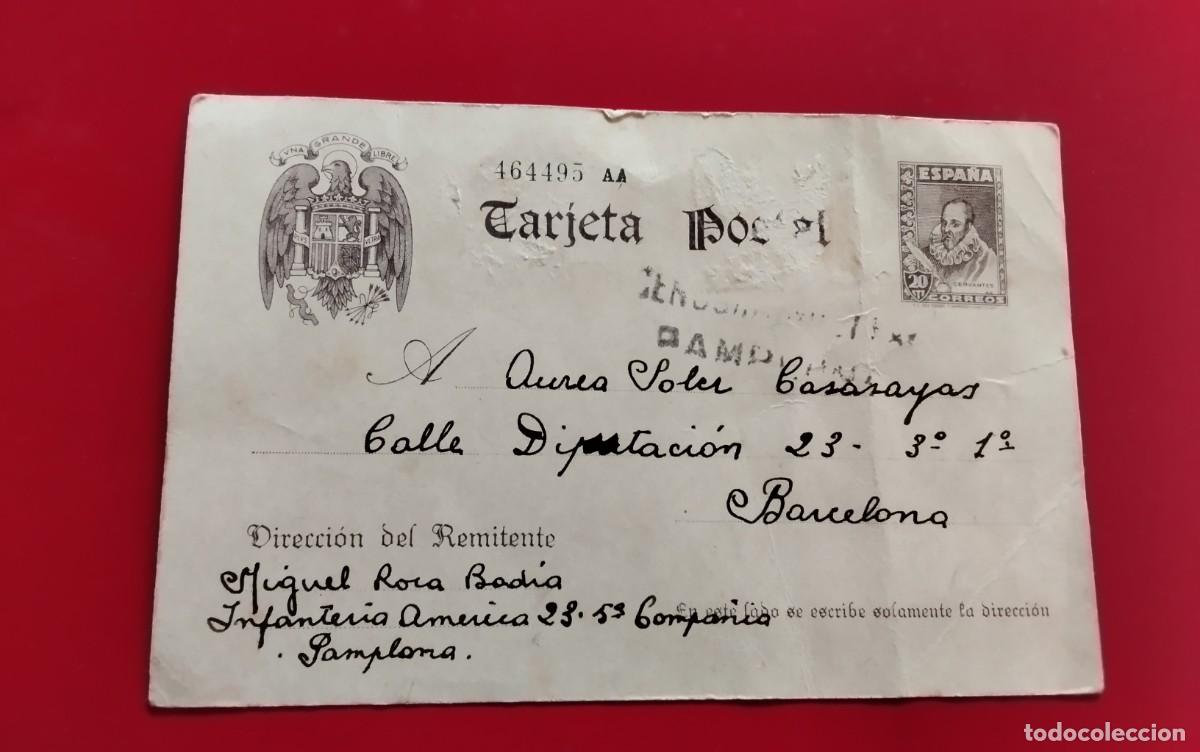 VNA GRANDE LIBRE
464495 AA
Tarjeta Postal
ESPAÑA
CERVANTES
20 CTS
CORREOS
A Aurea Soler Casasayas
Calle Diputación 23 - 3º 1º
Barcelona
Dirección del Remitente
Miguel Roca Badía
Infanteria America 23 - 5ª Compañia
En este lado se escribe solamente la dirección
. Pamplona .
todocoleccion